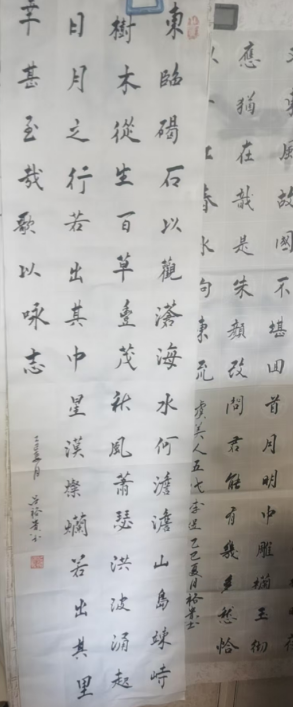 又東風故國不堪回首月明中雕欄玉砌
應猶在哉是朱顏改問君能有幾多愁恰
似一江春水向東流
虞美人五代李煜乙巳夏月
東臨碣石以觀滄海水何澹澹山島竦峙
樹木從生百草豐茂秋風蕭瑟洪波涌起
日月之行若出其中星漢燦爛若出其里
幸甚至哉歌以咏志